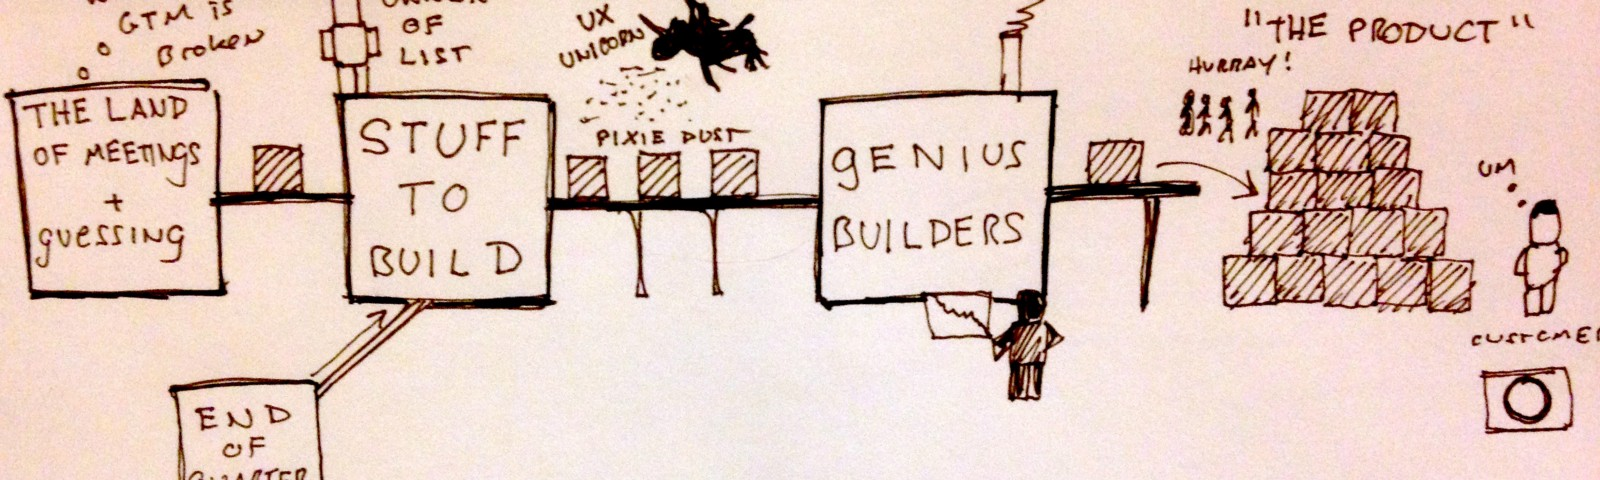 GTM is
Broken
OF
LIST
UX
UNICORN
PIXIE DUST
"THE PRODUCT"
HURRAY!
THE LAND
OF MEETINGS
+
guessing
STUFF
TO
BUILD
gENIUS
BUILDERS
UM
END
OF